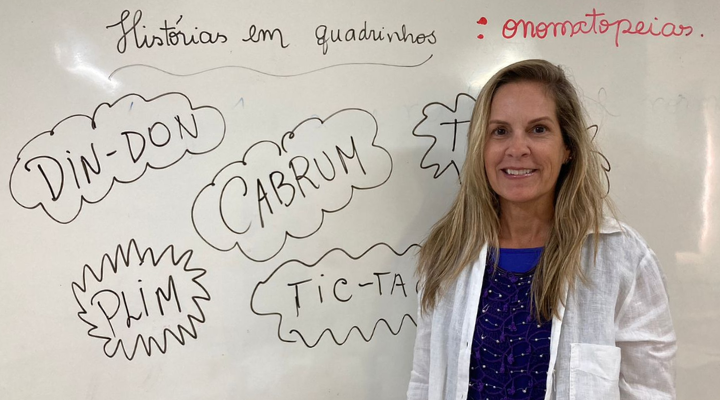 Histórias em quadrinhos : onomatopeias.
DIN-DON
CABRUM
PLIM
TIC-TA